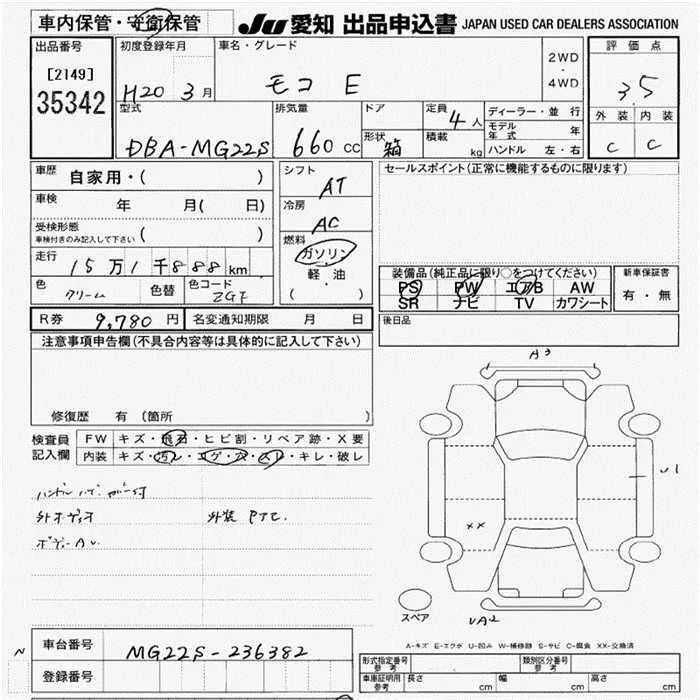 車内保管・守衛保管 JU 愛知 出品申込書 JAPAN USED CAR DEALERS ASSOCIATION
出品番号 初度登録年月 車名・グレード 2WD・4WD 評価点
[2149] H20 3月 モコ E 3.5
35342
型式 排気量 ドア 定員 4人 ディーラー・並行 外装 内装
DBA-MG22S 660 CC 形状 箱 積載 kg モデル年式 年 C C
ハンドル 左・右
車歴 自家用・( ) シフト AT セールスポイント(正常に機能するものに限ります)
車検 年 月( 日) 冷房 AC
受検形態 車検付きのみ記入して下さい ( ) 燃料 ガソリン
軽・油
( )
走行 15万1千888km
色 クリーム 色替 色コード ZG7
装備品(純正品に限り○をつけてください) 新車保証書
PS PW エアB AW 有・無
SR ナビ TV カワシート
R券 9,780円 名変通知期限 月 日 後日品
注意事項申告欄(不具合内容等は具体的に記入して下さい)
修復歴 有(箇所 )
検査員記入欄 FW キズ・飛石・ヒビ割・リペア跡・X要
内装 キズ・汚レ・コゲ・穴・スレ・キレ・破レ
外オーディオ 外装
A3
U1
XX
スペア UA2
A-キズ E-エクボ U-凹み W-補修跡 S-サビ C-腐食 XX-交換済
N 車台番号 MG22S-236382
登録番号
形式指定番号 参考 類別区分番号 参考
車庫証明用 参考 長さ cm 幅 cm 高さ cm